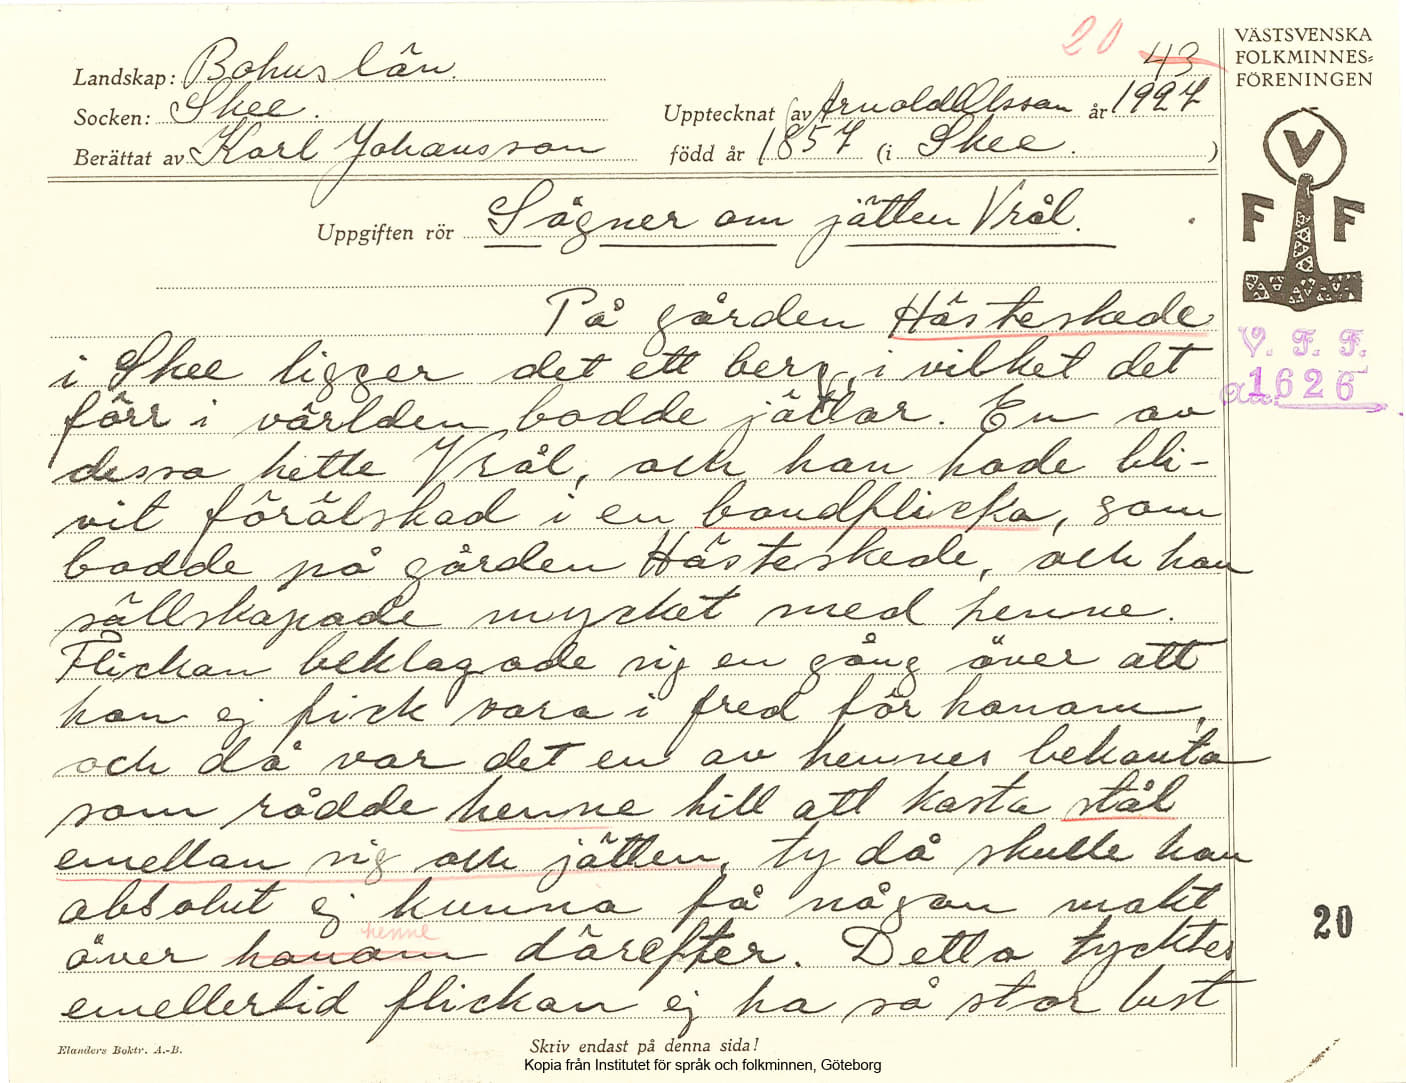 20 43
Landskap: Bohuslän.
Socken: Skee.
Upptecknat av Arnold Olsson år 1927
Berättat av Karl Johansson
född år 1857 (i Skee.)
Uppgiften rör Sägner om jätten Vrål.
På gården Hästeskede
i Skee ligger det ett berg, i vilket det
förr i världen bodde jättar. En av
dessa hette Vrål, och han hade bli-
vit förälskad i en bondflicka, som
bodde på gården Hästeskede, och han
sällskapade mycket med henne.
Flickan beklagade sig en gång över att
hon ej fick vara i fred för honom,
och då var det en av hennes bekanta
som rådde henne till att kasta stål
emellan sig och jätten, ty då skulle han
absolut ej kunna få någon makt
över honom henne därefter. Detta tycktes
emellertid flickan ej ha så stor lust
Elanders Boktr. A.-B.
Skriv endast på denna sida!
Kopia från Institutet för språk och folkminnen, Göteborg
VÄSTSVENSKA
FOLKMINNES-
FÖRENINGEN
V
F F
V. F. F.
1626
20